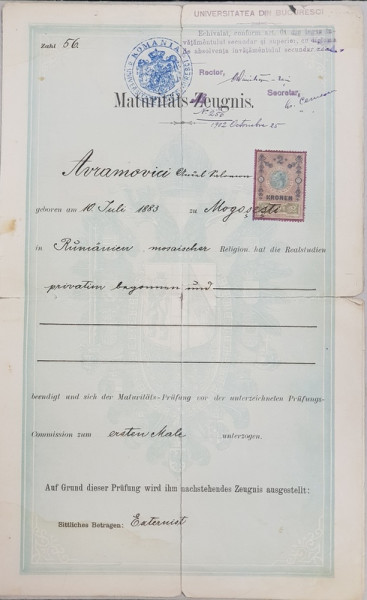 UNIVERSITATEA DIN BUCURESCI
Echivalat, conform art.
învăţământului secundar şi superior, cu
de absolvenţa învăţământului secundar
Zahl 56.
ROMANIA
Rector,
Secretar,
Maturitäts-Zeugnis.
1912 Octombrie 25
Avramovici
2
KRONEN
geboren am 10. Juli 1883 zu Mogoşeşti
in Rumänien mosaischer Religion, hat die Realstudien
privatim begonnen und
beendigt und sich der Maturitäts-Prüfung vor der unterzeichneten Prüfungs-
Commission zum ersten Male unterzogen.
Auf Grund dieser Prüfung wird ihm nachstehendes Zeugnis ausgestellt:
Sittliches Betragen: Externist